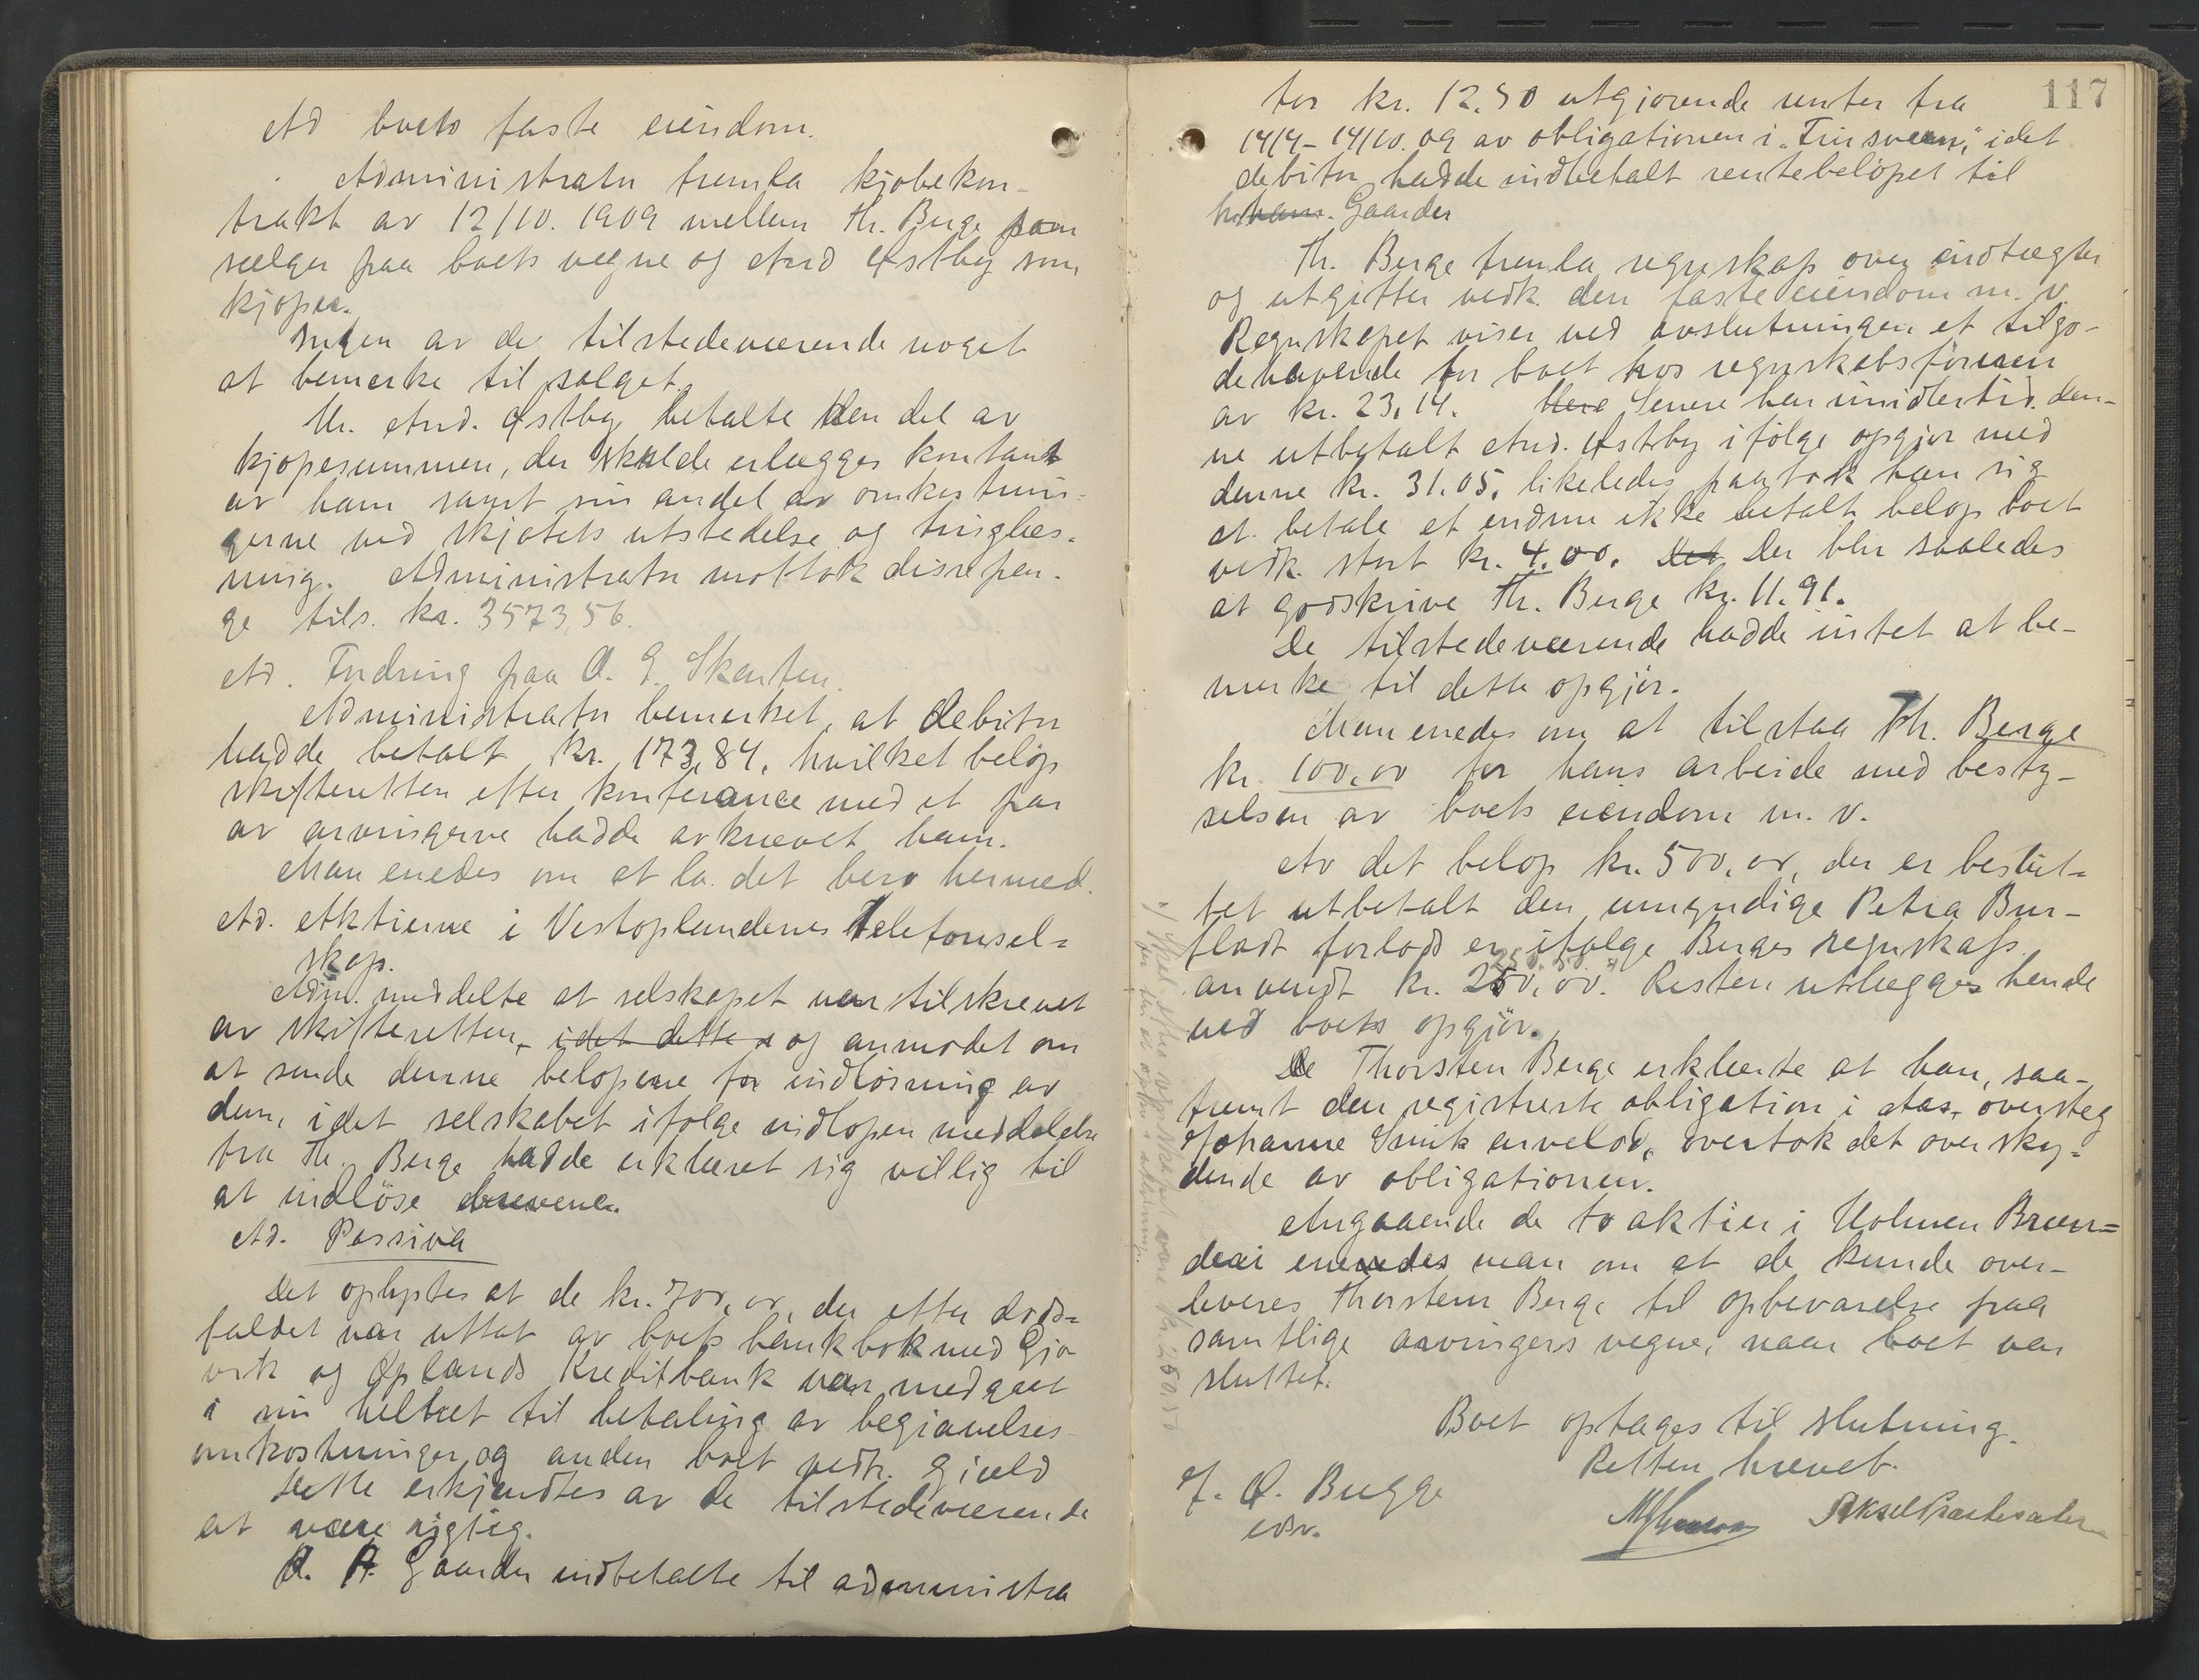 Ad boets faste eiendom.
Administrator fremla kjøbekon-
trakt av 12/10. 1909 mellem Th. Berge som
sælger paa boets vegne og And Østby som
kjøper.
Ingen av de tilstedeværende noget
at bemerke til salget.
Hr. And. Østby betalte den del av
kjøpesummen, der skulde erlægges kontant
av ham samt sin andel av omkostnin-
gerne ved skjøtets utstedelse og tinglæs-
ning. Administrator mottok disse pen-
ge tils. kr. 3573,56.
Ad. Fordring paa O. G. Skarten.
Administrator bemerket, at debitor
hadde betalt kr. 173,84, hvilket beløp
skifteretten efter konferance med et par
av arvingerne hadde avkrævet ham.
Man enedes om at la det bero hermed.
Ad. Aktierne i Vestoplandenes Telefonsel-
skap.
Adm. meddelte at selskapet var tilskrevet
av skifteretten, idet dette og anmodet om
at sende denne beløpene for indløsning av
dem, idet selskabet ifølge indløpen meddelelse
fra Th. Berge hadde erklæret sig villig til
at indløse brevene.
Ad. Passiva
Det oplystes at de kr. 700,00, der efter døds-
faldet var uttat av boets bankbok med Gjø-
vik og Oplands Kreditbank var medgaat
i sin helhet til betaling av begravelses
omkostninger og anden boet vedk. gjæld
Dette erkjendtes av de tilstedeværende
at være rigtig.
A. Gaarder indbetalte til administra
117
tor kr. 12.50 utgjørende renter fra
14/4 - 14/10. 09 av obligationen i "Finsveen", idet
debitor hadde indbetalt rentebeløpet til
Gaarder
Th. Berge fremla regnskap over indtægter
og utgifter vedk. den faste eiendom m. v.
Regnskapet viser ved avslutningen et tilgo-
dehavende for boet hos regnskabsføreren
av kr. 23,14. Senere har imidlertid den-
ne utbetalt And. Østby ifølge opgjør med
denne kr. 31.05, likeledes paatok han sig
at betale et endnu ikke betalt beløp boet
vedk. stort kr. 4.00. Det Der blir saaledes
at godskrive Th. Berge kr. 11.91.
De tilstedeværende hadde intet at be-
merke til dette opgjør.
Man enedes om at tilstaa Th. Berge
kr. 100,00 for hans arbeide med besty-
relsen av boets eiendom m. v.
Av det beløp kr. 500,00, der er beslut-
tet utbetalt den umyndige Petra Bur-
flødt forlods er ifølge Berges regnskaps
250.50 x)
anvendt kr. 250,00. Resten utlægges hende
ved boets opgjør.
De Thorsten Berge erklærte at han, saa-
fremt den registrerte obligation i Aas, oversteg
Johanne Snik arvelod, overtok det oversky-
dende av obligationen.
Angaaende de to aktier i Holmen Bræn-
deri enedes man om at de kunde over-
leveres Thorsten Berge til opbevarelse paa
samtlige arvingers vegne, naar boet var
sluttet.
Boet optages til slutning.
Retten hævet.
J. O. Bugge
edsv.
x) Skal efter regnskapet være kr. 250,50